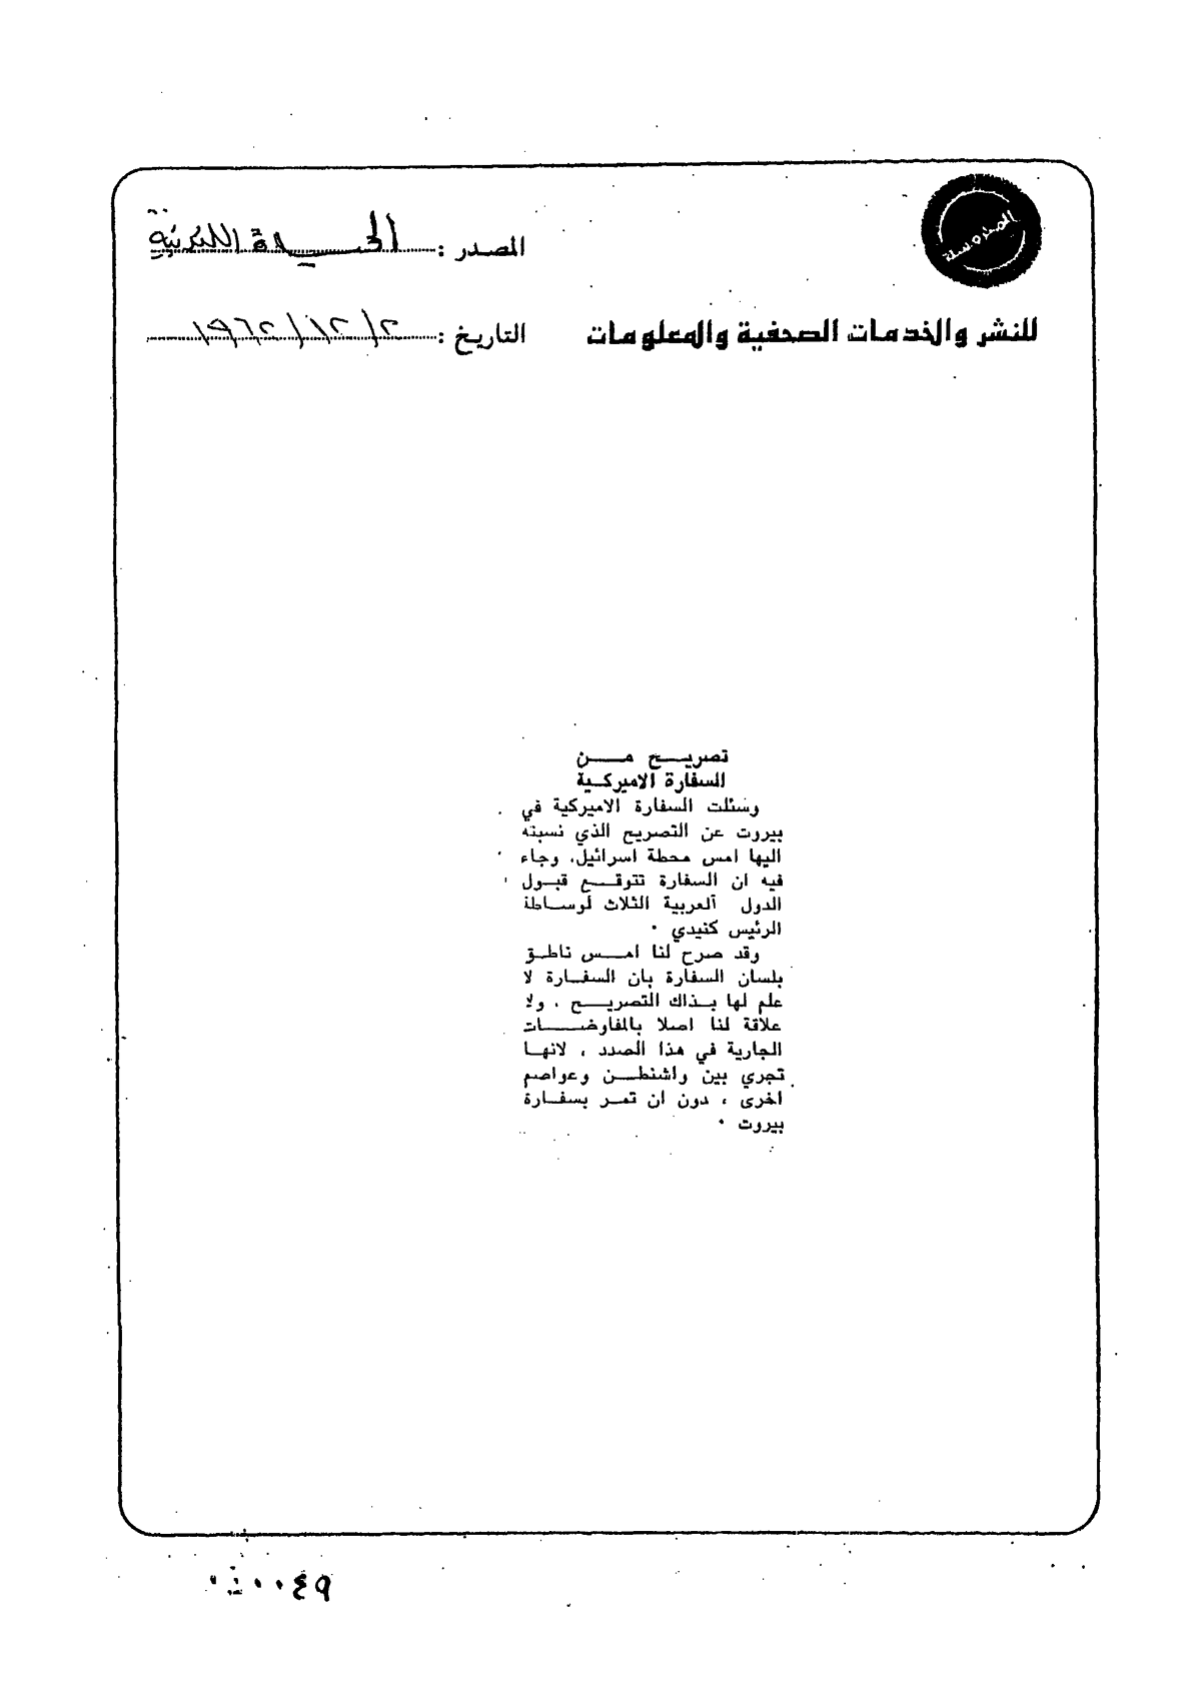 المصدر : الحيـــاة اللبنانية
للنشر والخدمات الصحفية والمعلومات
التاريخ : ٢/١٢/١٩٦٢
تصريـــح مـــن
السفارة الاميركـية
وسئلت السفارة الاميركية في
بيروت عن التصريح الذي نسبته
اليها امس محطة اسرائيل، وجاء
فيه ان السفارة تتوقـــع قبـول
الدول العربية الثلاث لوسـاطة
الرئيس كنيدي ٠
وقد صرح لنا امـــس ناطـق
بلسان السفارة بان السفـارة لا
علم لها بـذاك التصريـــح ، ولا
علاقة لنا اصلا بالمفاوضـــات
الجارية في هذا الصدد ، لانهـا
تجري بين واشنطـــن وعواصم
اخرى ، دون ان تمـر بسفـارة
بيروت ٠